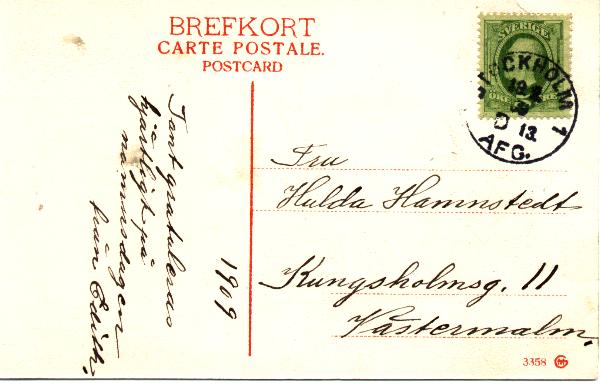 BREFKORT
CARTE POSTALE.
POSTCARD
SVERIGE
STOCKHOLM 1
D 13
AFG.
Tant gratuleras
hjärtligt på
namnsdagen
från Edith.
1909
Fru
Hulda Hamnstedt
Kungsholmsg. 11
Västermalm.
3358